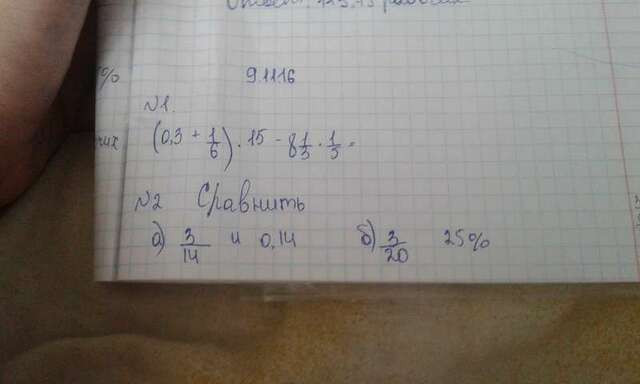 Ответ: 113,75
%
9.11.16
№1.
(0,3 + 1/6) · 15 - 8 1/3 · 1/3 =
№2 Сравнить
а) 3/14 и 0,14 б) 3/20 25%